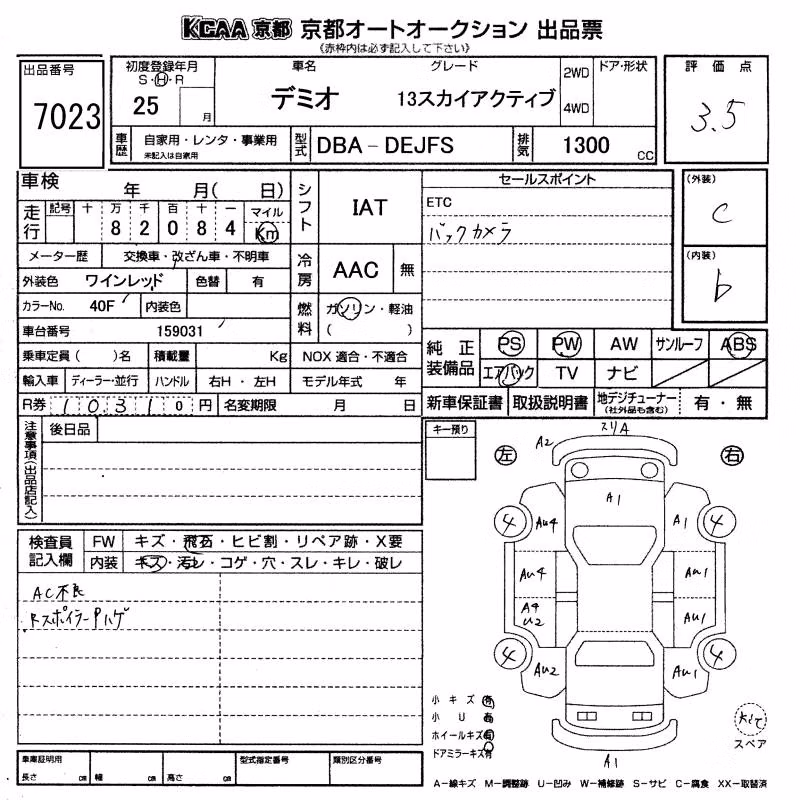 KCAA 京都 京都オートオークション 出品票
《赤枠内は必ず記入して下さい》
出品番号
7023
初度登録年月
S・H・R
25 月
車名
デミオ
グレード
13スカイアクティブ
2WD
4WD
ドア・形状
評価点
3.5
車歴
自家用・レンタ・事業用
未記入は自家用
型式
DBA-DEJFS
排気
1300 cc
車検 年 月( 日)
走行
記号 十 万 千 百 十 一 マイル
8 2 0 8 4 Km
メーター歴 交換車・改ざん車・不明車
外装色 ワインレッド 色替 有
カラーNo. 40F 内装色
車台番号 159031
乗車定員( )名 積載量 Kg NOX 適合・不適合
輸入車 ディーラー・並行 ハンドル 右H・左H モデル年式 年
R券 10310円 名変期限 月 日
シフト
IAT
冷房
AAC 無
燃料
ガソリン・軽油
( )
セールスポイント
ETC
バックカメラ
(外装)
c
(内装)
b
純正装備品
PS PW AW サンルーフ ABS
エアバック TV ナビ
新車保証書 取扱説明書 地デジチューナー
(社外品も含む)
有・無
注意事項(出品店記入)
後日品
検査員記入欄
FW キズ・飛石・ヒビ割・リペア跡・X要
内装 キズ・汚レ・コゲ・穴・スレ・キレ・破レ
AC不良
RスポイラーPハゲ
キー預り
スリA
A2
左
右
A1
4 Au4 A1 4
Au4 Au1
A4
U2
Au1
4 Au2 Au1 4
A1
小キズ有
小U有
ホイールキズ有
ドアミラーキズ有
スペア
車庫証明用
長さ cm 幅 cm 高さ cm
型式指定番号
類別区分番号
A-線キズ M-調整跡 U-凹み W-補修跡 S-サビ C-腐食 XX-取替済